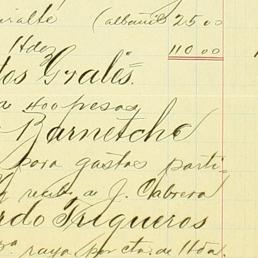 (albañil 25 00
Hdez 110 00
tos Grales.
a 400 pesos
Barnetche
para gastos parti-
de J. Cabrera
rdo Trigueros
raya por cta. de Hda.